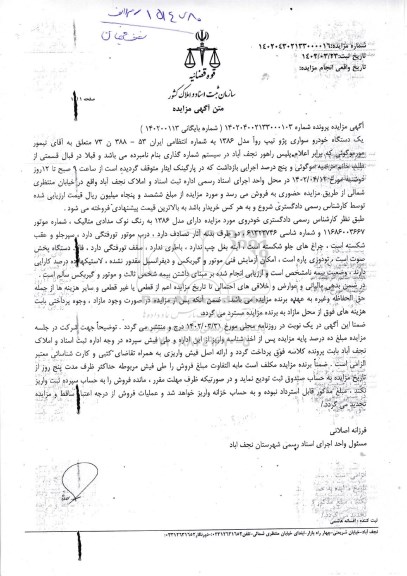 شماره مزایده: ۱۴۰۲۰۴۳۰۲۱۳۳۰۰۰۰۱۶
تاریخ ثبت: ۱۴۰۲/۰۳/۲۳
تاریخ واقعی انجام مزایده:
قوه قضائیه
سازمان ثبت اسناد و املاک کشور
صفحه ۱ از ۱
متن آگهی مزایده
آگهی مزایده پرونده شماره ۱۴۰۲۰۴۰۰۲۱۳۳۰۰۰۱۰۳ (شماره بایگانی ۱۴۰۲۰۰۱۱۳)
یک دستگاه خودرو سواری پژو تیپ روآ مدل ۱۳۸۶ به شماره انتظامی ایران ۵۳ – ۳۸۸ ن ۷۳ متعلق به آقای تیمور
که برابر اعلام پلیس راهور نجف آباد در سیستم شماره گذاری بنام نامبرده می باشد و قبلا در قبال قسمتی از
و پنج درصد اجرایی بازداشت که در پارکینگ ایثار متوقف گردیده است از ساعت ۹ صبح تا ۱۲ روز
مورخ ۱۴۰۲/۰۴/۱۲ در محل واحد اجرای اسناد رسمی اداره ثبت اسناد و املاک نجف آباد واقع در خیابان منتظری
شمالی از طریق مزایده حضوری به فروش می رسد و مورد مزایده از مبلغ ششصد و پنجاه میلیون ریال قیمت ارزیابی شده
توسط کارشناس رسمی دادگستری شروع و به هر کس خریدار باشد به بالاترین قیمت پیشنهادی فروخته می شود.
طبق نظر کارشناس رسمی دادگستری خودروی مورد مزایده دارای مدل ۱۳۸۶ به رنگ نوک مدادی متالیک، شماره موتور
۱۱۶۸۶۰۰۳۶۶۷ و شماره شاسی ۶۱۳۲۳۷۳۶، دو طرف بدنه آثار تصادف دارد، درب موتور تورفتگی دارد، سپر جلو و عقب
شکسته است، چراغ های جلو شکسته است، آینه بغل چپ ندارد، باطری ندارد، سقف تورفتگی دارد، فاقد دستگاه پخش
صوت است، تودوزی پاره است، امکان آزمایش فنی موتور و گیربکس و دیفرانسیل مقدور نشده، لاستیکها ده درصد کارایی
دارند، وضعیت بیمه نامشخص است و ارزیابی انجام شده بر مبنای داشتن بیمه شخص ثالث و موتور و گیربکس سالم است.
در ضمن بدهی مالیاتی و عوارض و خلافی های احتمالی تا تاریخ مزایده اعم از قطعی یا غیر قطعی و سایر هزینه ها از جمله
حق الحفاظه وغیره به عهده برنده مزایده می باشد. ضمن آنکه پس از مزایده در صورت وجود مازاد، وجوه پرداختی بابت
هزینه های فوق از محل مازاد به برنده مزایده مسترد می گردد.
ضمنا این آگهی در یک نوبت در روزنامه محلی مورخ ۱۴۰۲/۰۳/۳۱ درج و منتشر می گردد. توضیحاً جهت شرکت در جلسه
مزایده مبلغ ده درصد پایه مزایده پس از اخذ شناسه واریز از این اداره و طی فیش سپرده در وجه اداره ثبت اسناد و املاک
نجف آباد بابت پرونده کلاسه فوق پرداخت گردد و ارائه اصل فیش واریزی به همراه تقاضای کتبی و کارت شناسائی معتبر
الزامی است. ضمناً برنده مزایده مکلف است مابه التفاوت مبلغ فروش را طی فیش مربوطه حداکثر ظرف مدت پنج روز از
تاریخ مزایده به حساب صندوق ثبت تودیع نماید و در صورتیکه ظرف مهلت مقرر، مانده فروش را به حساب سپرده ثبت واریز
نکند، مبلغ مذکور قابل استرداد نبوده و به حساب خزانه واریز خواهد شد و عملیات فروش از درجه اعتبار ساقط و مزایده
تجدید می گردد.
فرزانه اصلانی
مسئول واحد اجرای اسناد رسمی شهرستان نجف آباد
ثبت کننده: افسانه هاشمی